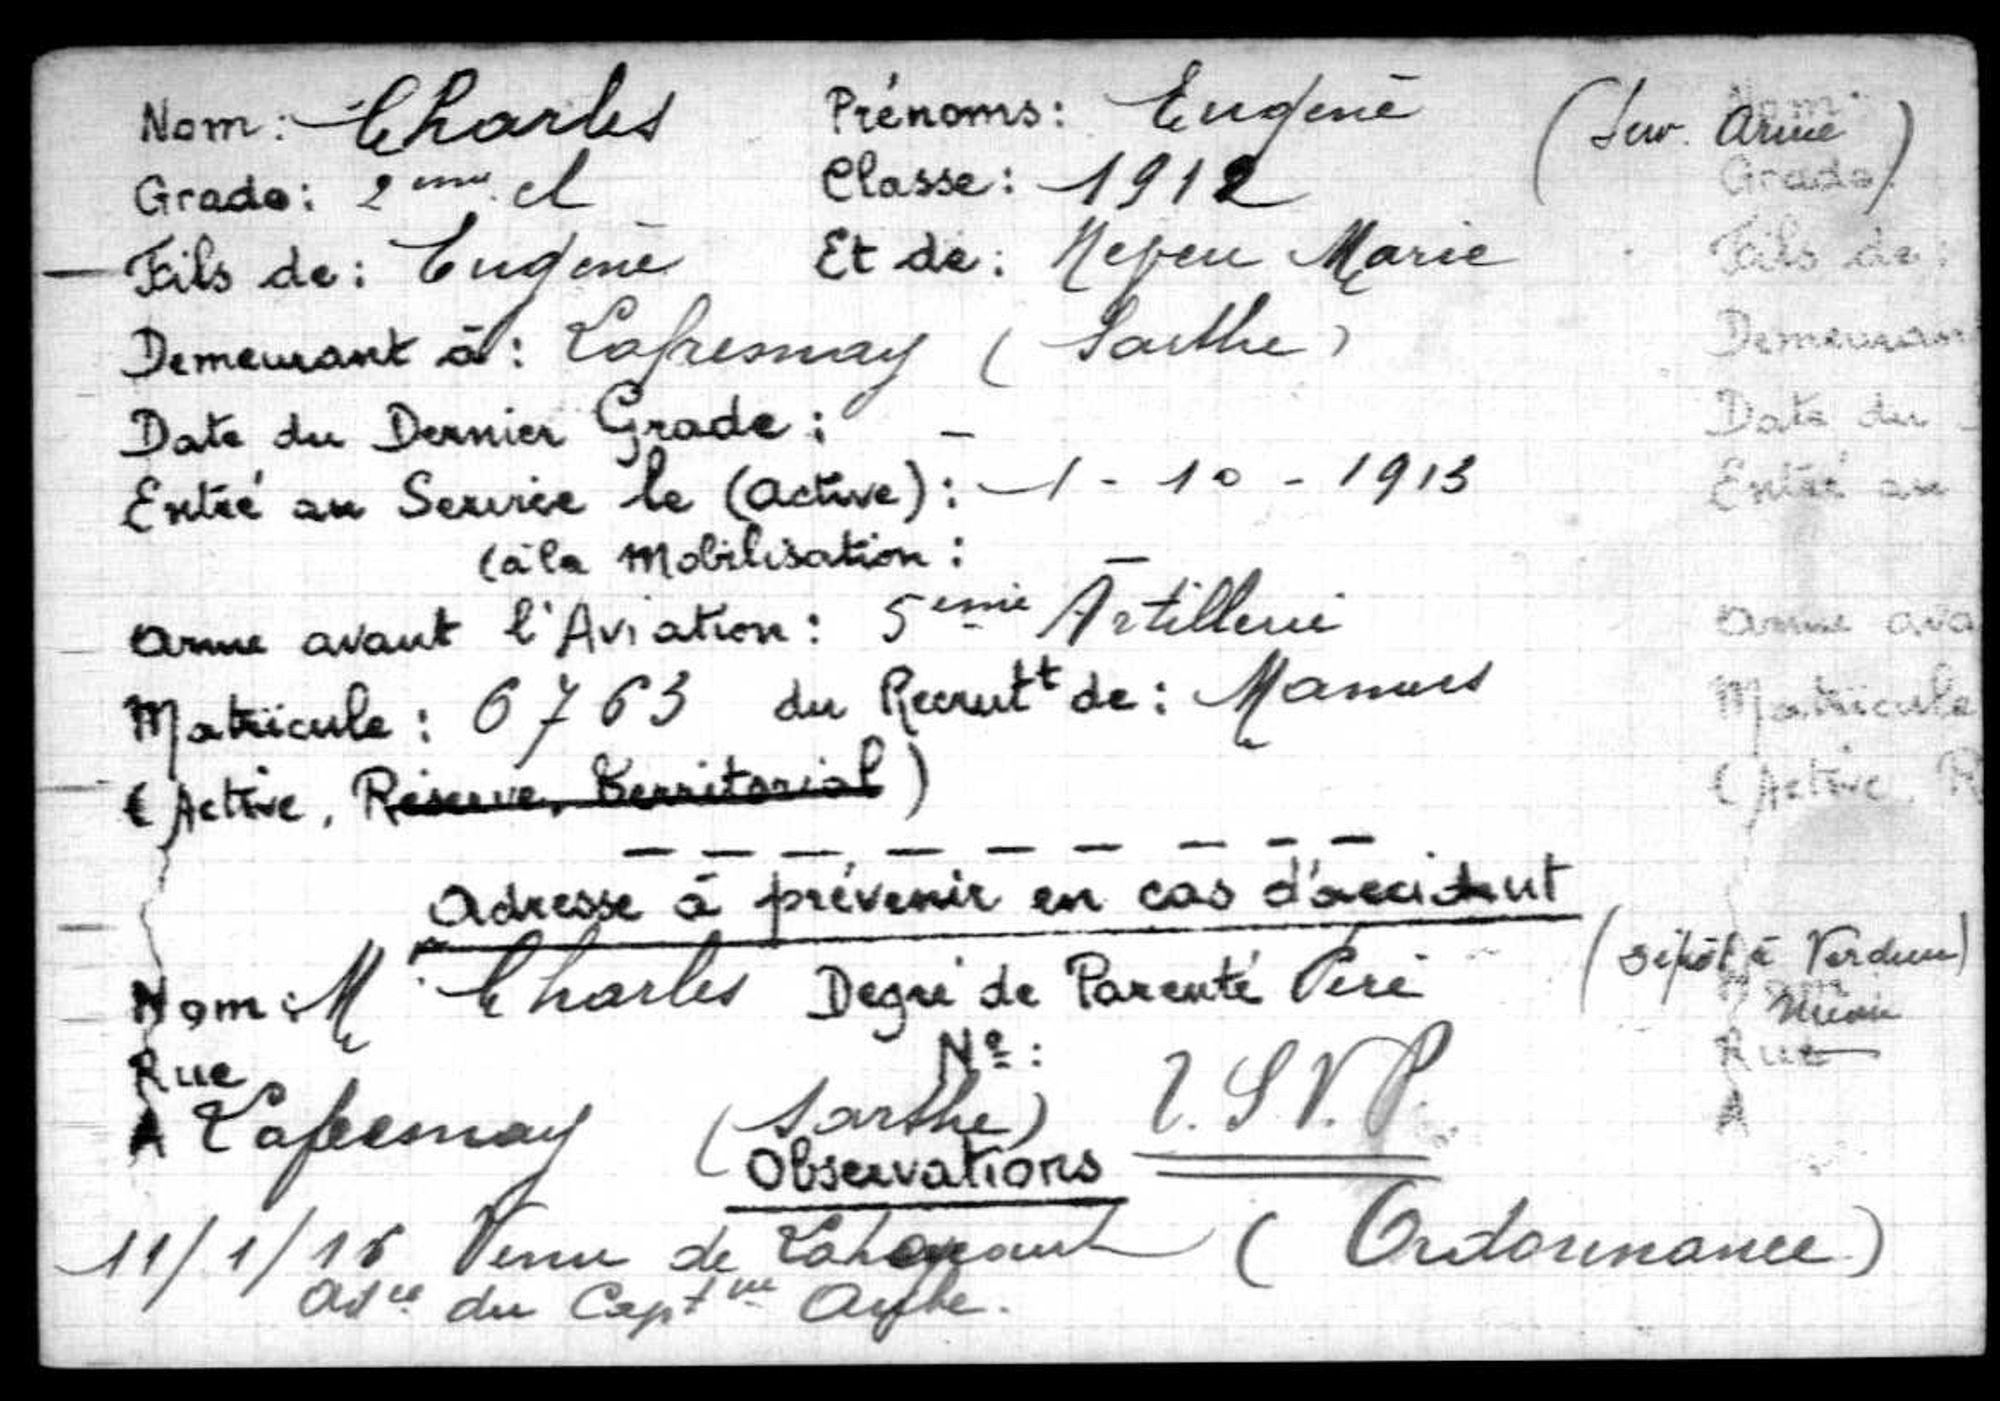 Nom: Charles Prénoms: Eugène (Serv. Armé)
Grade: 2eme cl Classe: 1912
Fils de: Eugène Et de: Neveu Marie
Demeurant à: Lafresnay (Sarthe)
Date du Dernier Grade: -
Entré au Service le (Active): 1-10-1913
(à la Mobilisation: -
Arme avant l'Aviation: 5eme Artillerie
Matricule: 6763 du Recrutt de: Mamers
(Active, Réserve, Territorial)
Adresse à prévenir en cas d'accident
Nom: M Charles Degré de Parenté Père (dépôt à Verdun)
Rue Nº:
A Lafresnay (Sarthe) T.S.V.P.
Observations
11/1/16 Venu de (Ordonnance)
du Capt
Nom:
Grade:
Fils de:
Demeuran
Date du
Entré au
Arme ava
Matricule
(Active, R
Nom
Rue
A